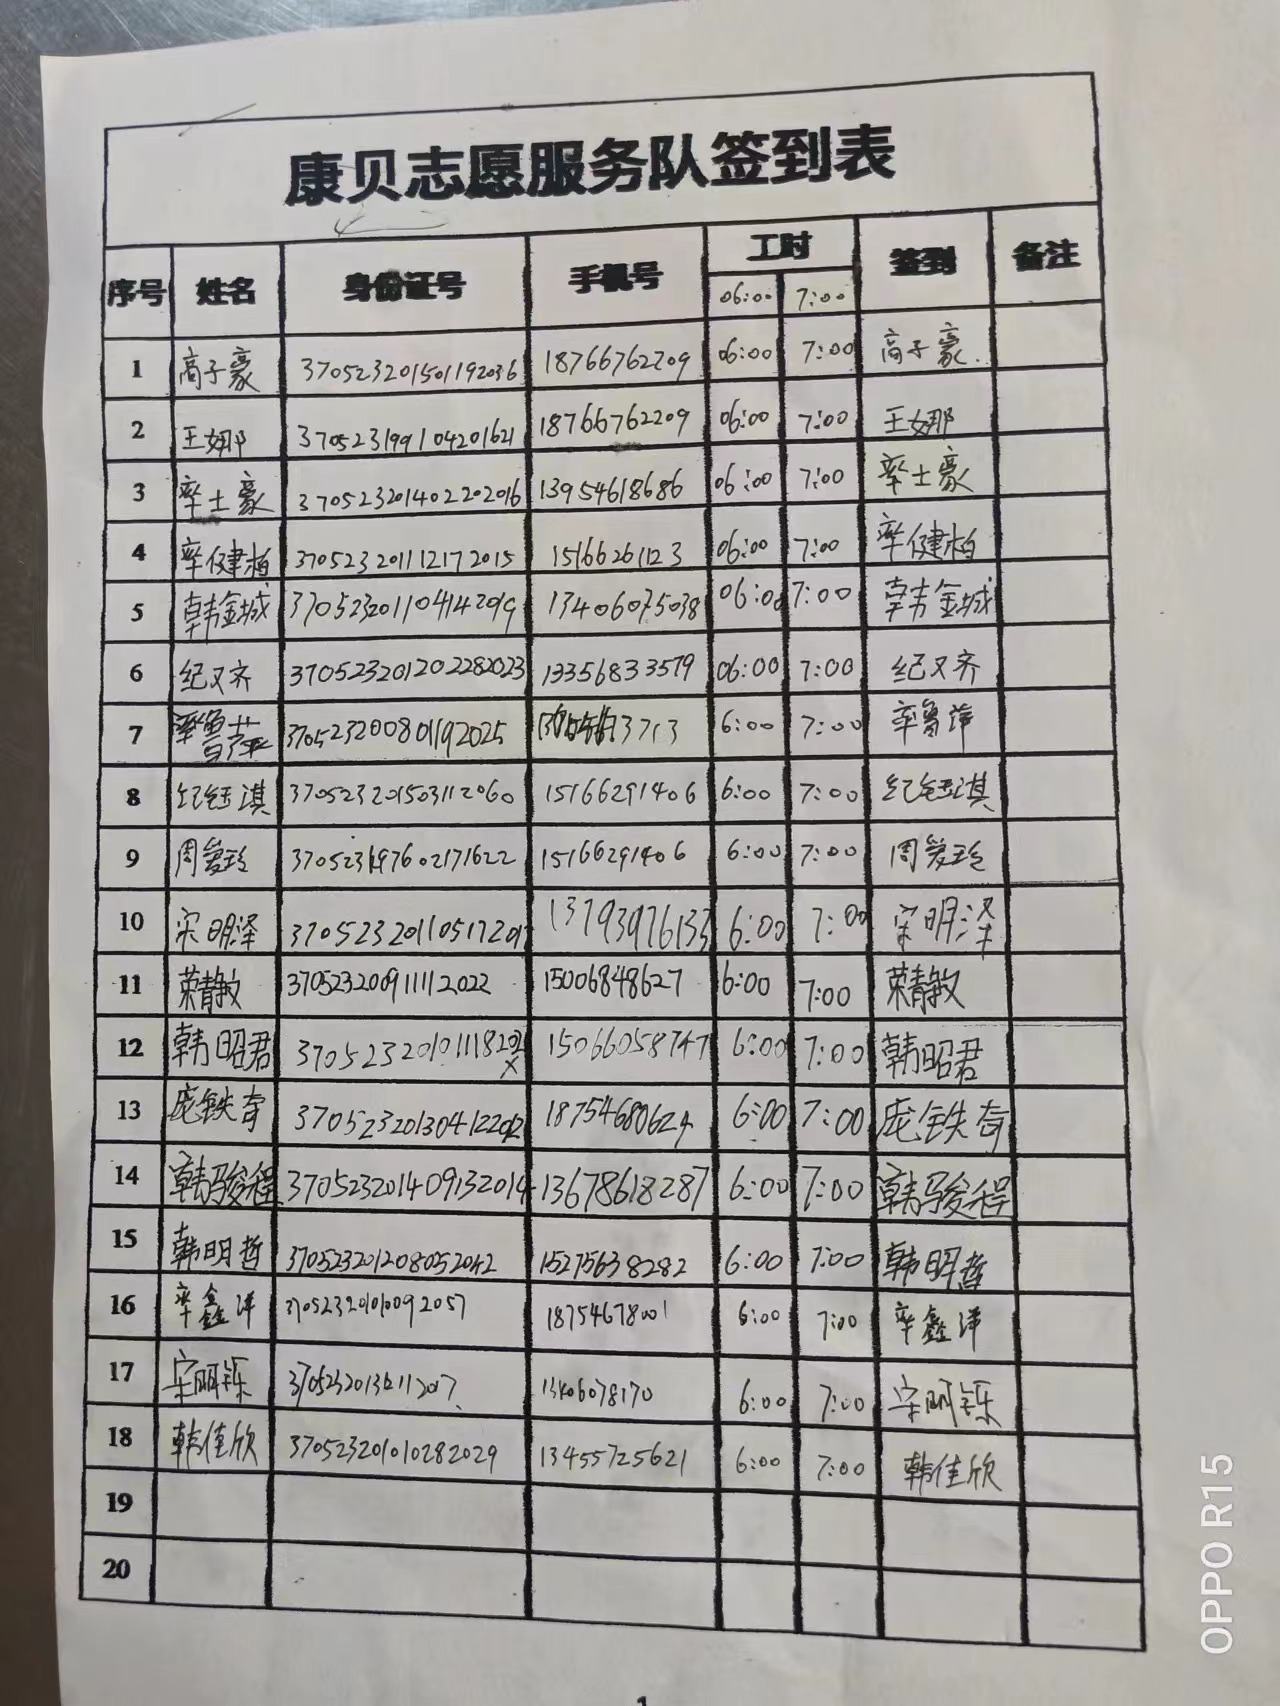 康贝志愿服务队签到表
序号 姓名 身份证号 手机号 工时 签到 备注
06:00 7:00
1 高子豪 370523201501192036 18766762209 06:00 7:00 高子豪
2 王娜 370523199104201621 18766762209 06:00 7:00 王娜
3 率士豪 370523201402202016 13954618686 06:00 7:00 率士豪
4 率健柏 370523201112172015 15166261123 06:00 7:00 率健柏
5 韩金城 370523201104142019 13406075038 06:00 7:00 韩金城
6 纪又齐 370523201202282023 13356833579 06:00 7:00 纪又齐
7 率鲁萍 370523200801192025 6:00 7:00 率鲁萍
8 纪钰淇 370523201503112060 15166291406 6:00 7:00 纪钰淇
9 周爱玲 370523197602171622 15166291406 6:00 7:00 周爱玲
10 宋明泽 13793976133 6:00 7:00 宋明泽
11 荣靖敏 370523200911112022 15006848627 6:00 7:00 荣靖敏
12 韩昭君 37052320101118202X 15066058747 6:00 7:00 韩昭君
13 庞铁奇 370523201304122012 18754680624 6:00 7:00 庞铁奇
14 韩骏程 370523201409132014 13678618287 6:00 7:00 韩骏程
15 韩明哲 370523201208052042 15275638282 6:00 7:00 韩明哲
16 率鑫洋 18754678001 6:00 7:00 率鑫洋
17 宋明铄 13406078170 6:00 7:00 宋明铄
18 韩佳欣 370523201010282029 13455725621 6:00 7:00 韩佳欣
19
20
1
OPPO R15